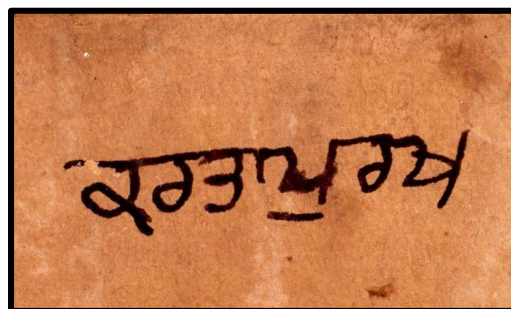 ਕਰਤਾਪੁਰਖ